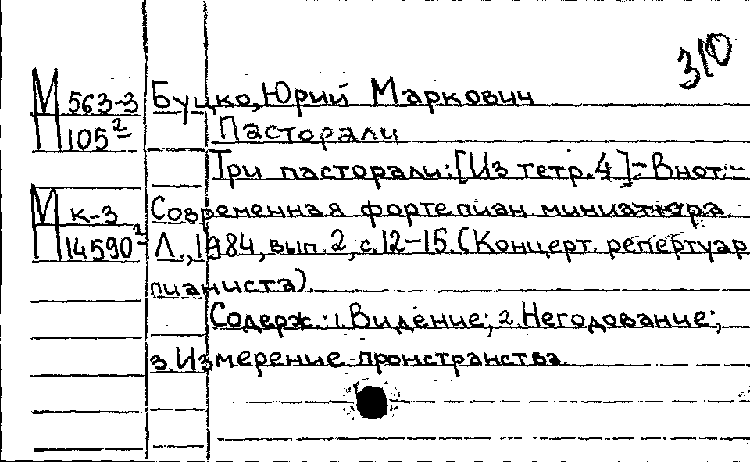 310
М 563-3 Буцко, Юрий Маркович
П 105² Пасторали
Три пасторали: [Из тетр. 4]. - В нот.: -
М к-3 Современная фортепиан. миниатюра.
П 14590² Л., 1984, вып. 2, с. 12-15. (Концерт. репертуар
пианиста).
Содерж.: 1. Видение; 2. Негодование;
3. Измерение пронстранства.